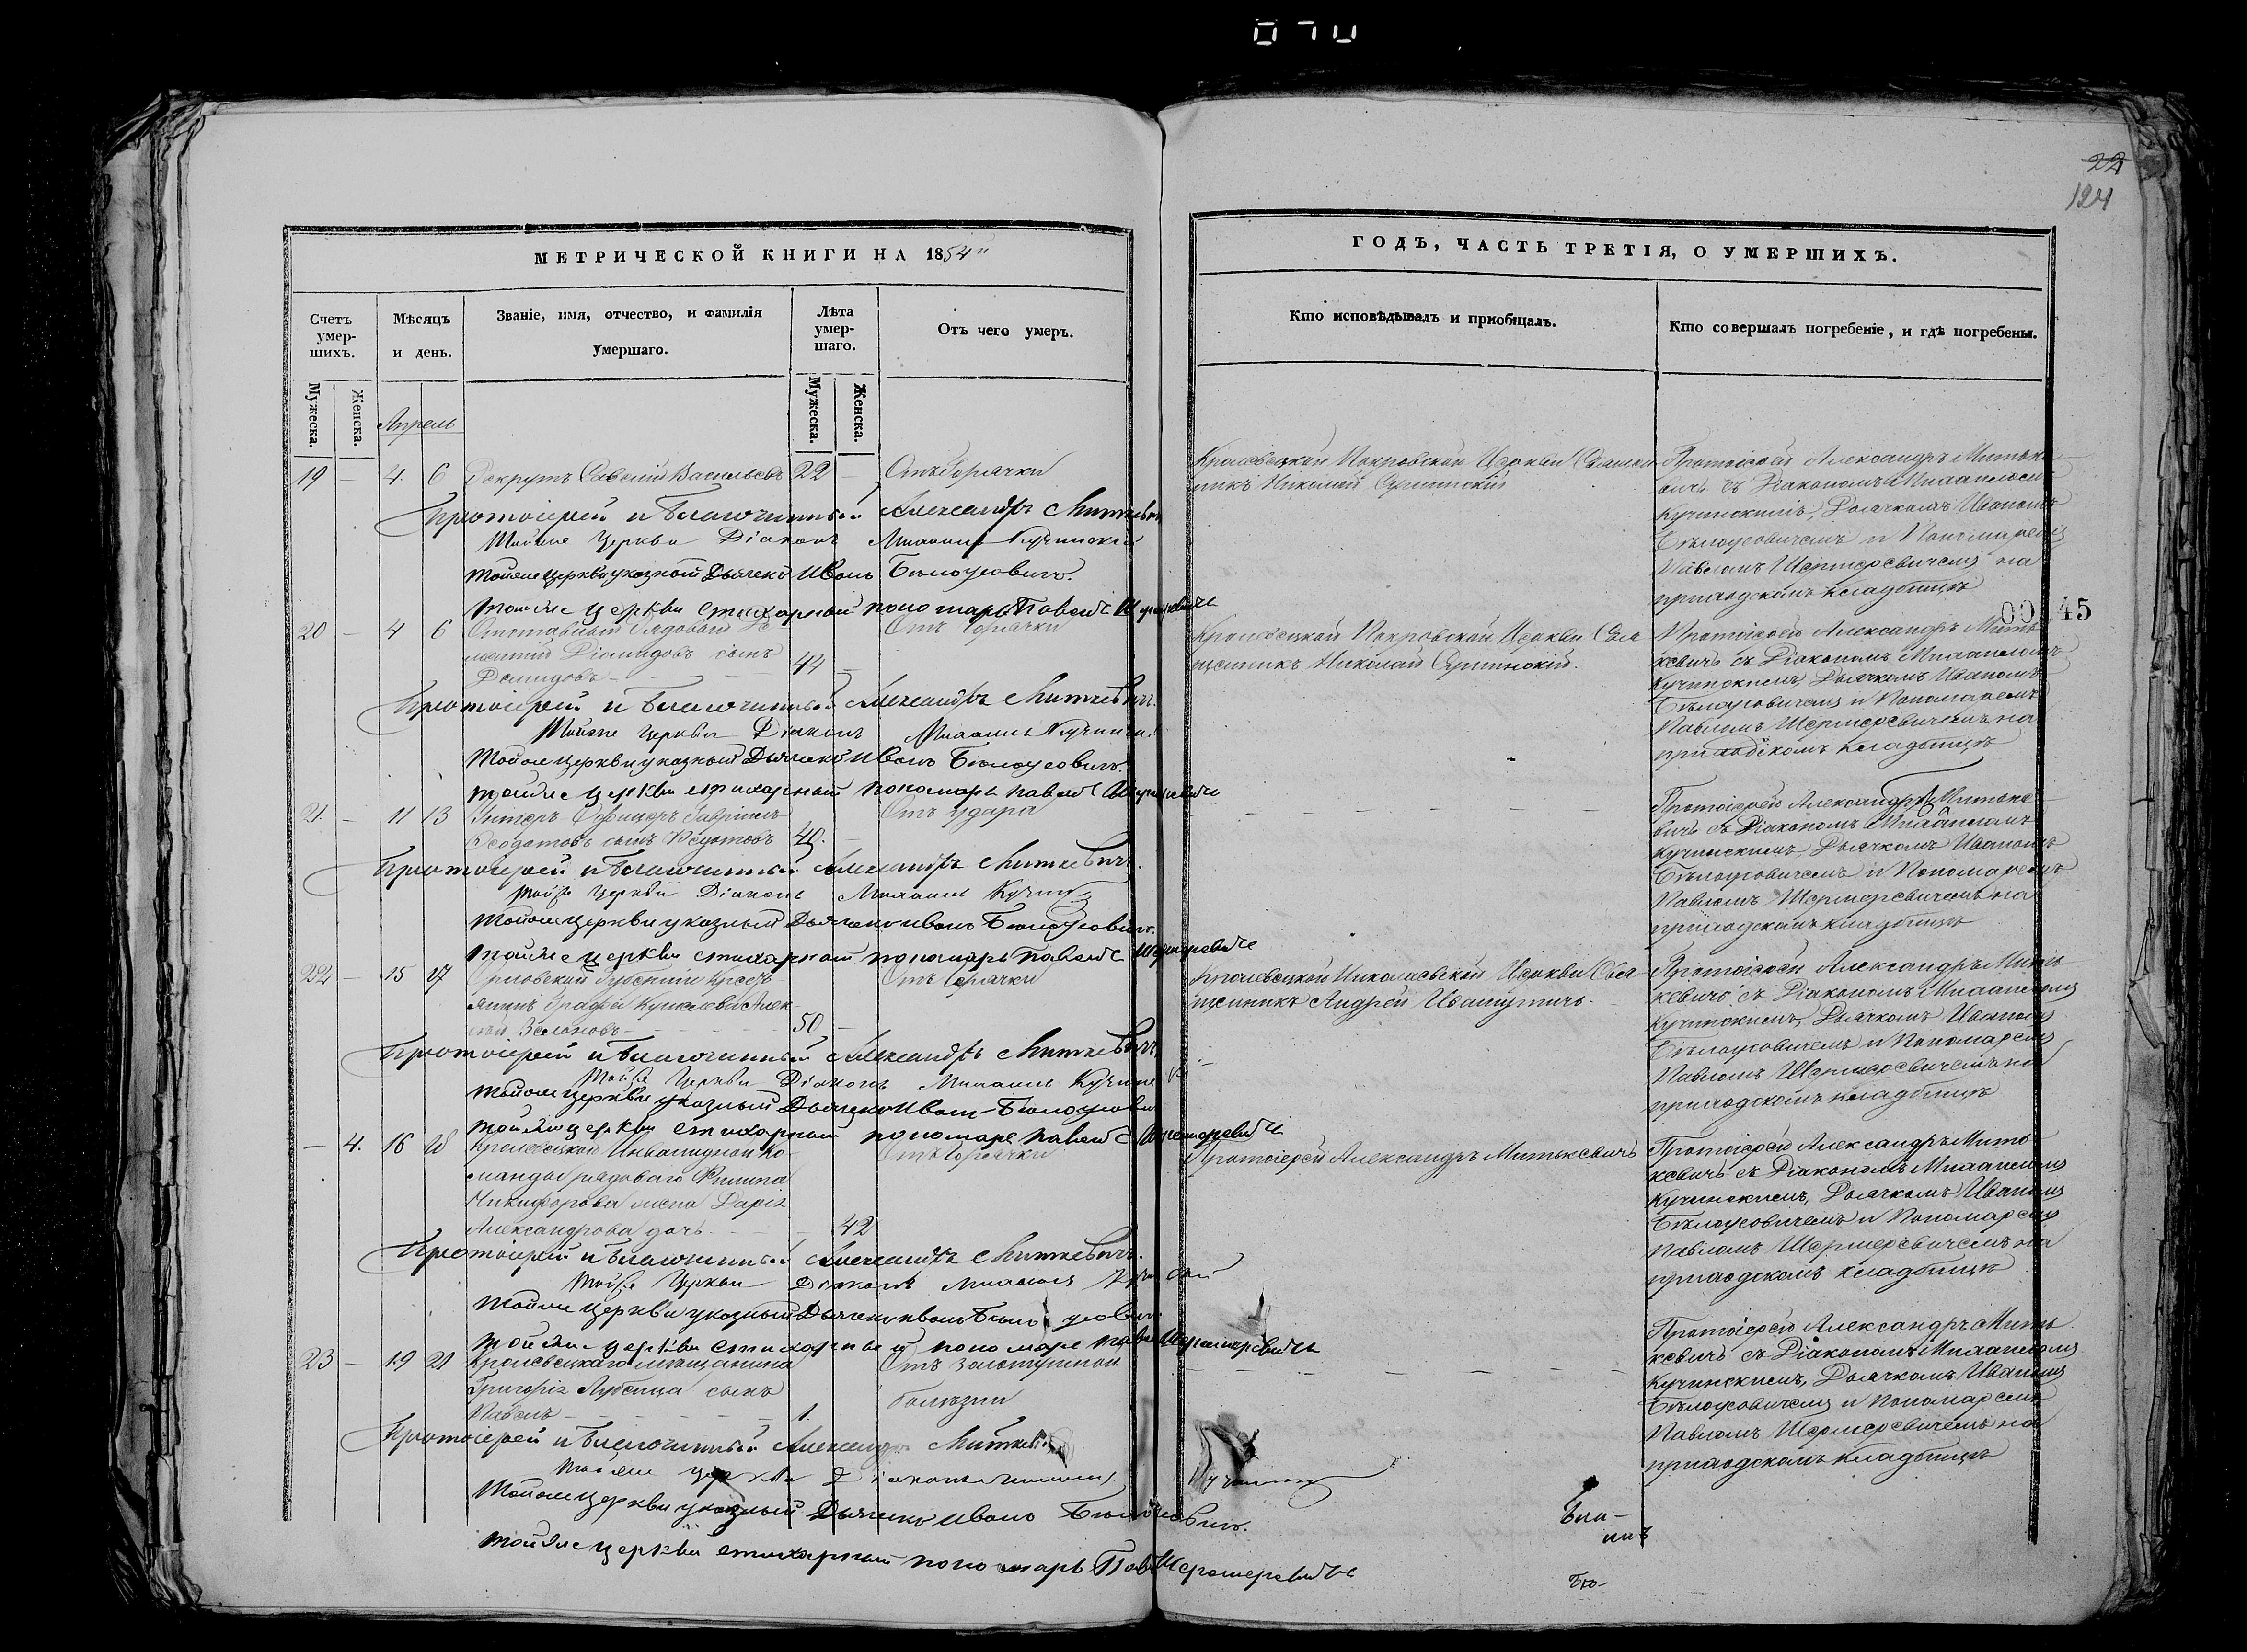 22
124
МЕТРИЧЕСКОЙ КНИГИ НА 1854
Счетъ умер-шихъ.
Мѣсяцъ и день.
Званіе, имя, отчество, и фамилія умершаго.
Лѣта умер-шаго.
Отъ чего умеръ.
Мужеска.
Женска.
Мужеска.
Женска.
Апрель
19 — 4. 6 Рекрутъ Савелій Васильевъ 22 — Отъ Горячки
Протоіерей и Благочинный Александръ Митькевичъ
Тойже Церкви Діаконъ Михаилъ Кучинскій
Тойже церкви указный Дьячекъ Иванъ Белоусовичъ.
Тойже церкви стихарный пономарь Павелъ Шермеревичъ
20 — 4 6 Отставный Рядовый
Діамидовъ сынъ 44 —
Демидовъ
Отъ Горячки
Протоіерей и Благочинный Александръ Митькевичъ.
Тойже Церкви Діаконъ Михаилъ
Тойже церкви указный Дьячекъ Иванъ Белоусовичъ.
Тойже церкви стихарный пономарь Павелъ Шермеревичъ
21. — 11 13 Унтеръ Офицеръ Гавріилъ Отъ удара
Ѳеодотовъ сынъ Ѳедотовъ 40. —
Протоіерей и Благочинный Александръ Митькевичъ.
Тойже Церкви Діаконъ Михаилъ
Тойже церкви указный Дьячекъ Иванъ Белоусовичъ.
Тойже церкви стихарный пономарь Павелъ Шермеревичъ
22 — 15 17 Орловской Губерніи Кресть- Отъ Горячки
янинъ Графа Алек-
сѣй Зеленовъ 50 —
Протоіерей и Благочинный Александръ Митькевичъ
Тойже Церкви Діаконъ Михаилъ
Тойже церкви указный Дьячекъ Иванъ
Тойже церкви стихарный пономарь Павелъ Шермеревичъ
— 4. 16 18 Кролевецкой Инвалидной Ко- Отъ Горячки
манды рядоваго Филипа
Никифорова жена Дарія
Александрова дочь 42
Протоіерей и Благочинный Александръ Митькевичъ.
Тойже Церкви Діаконъ Михаилъ
Тойже церкви указный Дьячекъ Иванъ
Тойже церкви стихарный пономарь Павелъ Шермеревичъ
23 — 19 21 Кролевецкаго мещанина Отъ золотушной
Григорія сынъ болезни
Павелъ 1.
Протоіерей и Благочинный Александръ Митькевичъ
Тойже церкви Діаконъ Михаилъ
Тойже церкви указный Дьячекъ Иванъ
Тойже церкви стихарный пономарь Шермеревичъ
ГОДЪ, ЧАСТЬ ТРЕТІЯ, О УМЕРШИХЪ.
Кто исповѣдывалъ и пріобщалъ.
Кто совершалъ погребеніе, и гдѣ погребены.
Кролевецкой Покровской Церкви Священ-
никъ Николай
Протоіерей Александръ Митьке-
вичъ съ Діакономъ Михаиломъ
Кучинскимъ, Дьячкомъ Иваномъ
Бѣлоусовичемъ и Пономаремъ
Павломъ Шермеревичемъ на
приходскомъ кладбищѣ
00 45
Кролевецкой Покровской Церкви Свя-
щенникъ Николай
Протоіерей Александръ Мить-
кевичъ съ Діакономъ Михаиломъ
Кучинскимъ, Дьячкомъ Иваномъ
Бѣлоусовичемъ и Пономаремъ
Павломъ Шермеревичемъ на
приходскомъ кладбищѣ
Протоіерей Александръ Митьке-
вичъ съ Діакономъ Михаиломъ
Кучинскимъ, Дьячкомъ Иваномъ
Бѣлоусовичемъ и Пономаремъ
Павломъ Шермеревичемъ на
приходскомъ кладбищѣ
Кролевецкой Николаевской Церкви Свя-
щенникъ Андрей
Протоіерей Александръ Мить-
кевичъ съ Діакономъ Михаиломъ
Кучинскимъ, Дьячкомъ Иваномъ
Бѣлоусовичемъ и Пономаремъ
Павломъ Шермеревичемъ на
приходскомъ кладбищѣ
Протоіерей Александръ Митькевичъ
Протоіерей Александръ Мить-
кевичъ съ Діакономъ Михаиломъ
Кучинскимъ, Дьячкомъ Иваномъ
Бѣлоусовичемъ и Пономаремъ
Павломъ Шермеревичемъ на
приходскомъ кладбищѣ
Протоіерей Александръ Мить-
кевичъ съ Діакономъ Михаиломъ
Кучинскимъ, Дьячкомъ Иваномъ
Бѣлоусовичемъ и Пономаремъ
Павломъ Шермеревичемъ на
приходскомъ кладбищѣ